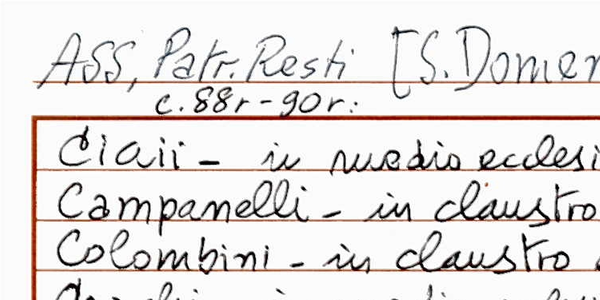 ASS, Patr. Resti [S. Domen
c. 88r - 90r:
Ciaii - in medio ecclesi
Campanelli - in claustro
Colombini - in claustro